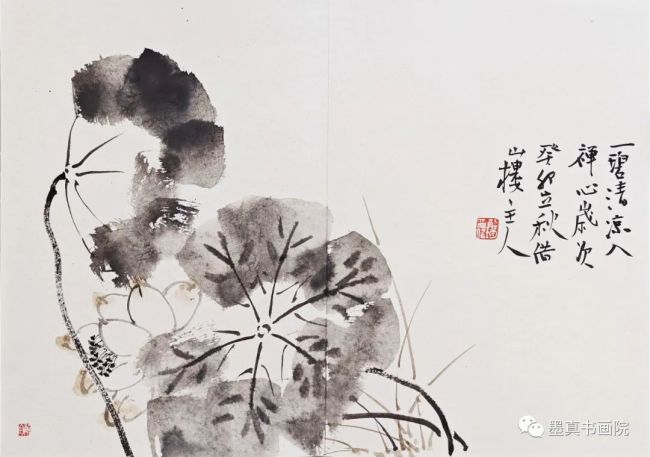 一碧清凉入
禅心岁次
癸卯立秋借
山楼主人
墨真书画院